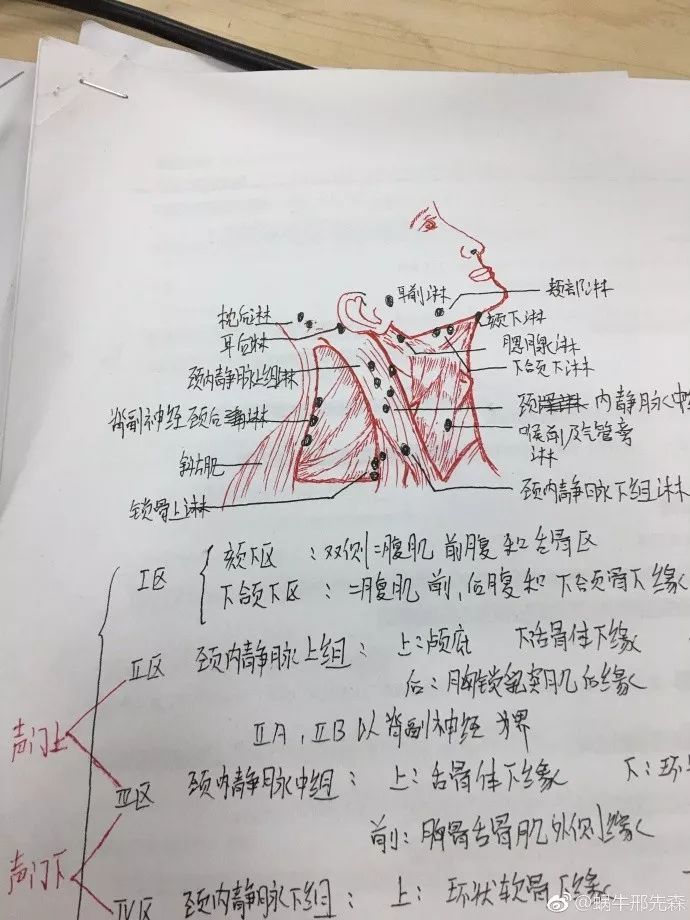 枕后淋
耳后淋
颈内静脉上组淋
背副神经 颈后淋
斜方肌
锁骨上淋
耳前淋
颏部淋
颏下淋
腮腺淋
下合页下淋
颈 内静脉中
喉前及气管旁
淋
颈内静脉下组淋
I区
颏下区:双侧二腹肌前腹和舌骨区
下合页下区:二腹肌前,后腹和下合页骨下缘
II区 颈内静脉上组:上:颅底 下舌骨体下缘
后:胸锁乳突肌后缘
IIA,IIB以背副神经为界
声门上
III区 颈内静脉中组:上:舌骨体下缘 下:环
前:胸骨舌骨肌外侧缘
声门下
IV区 颈内静脉下组:上:环状软骨下缘
@蜗牛邢先森